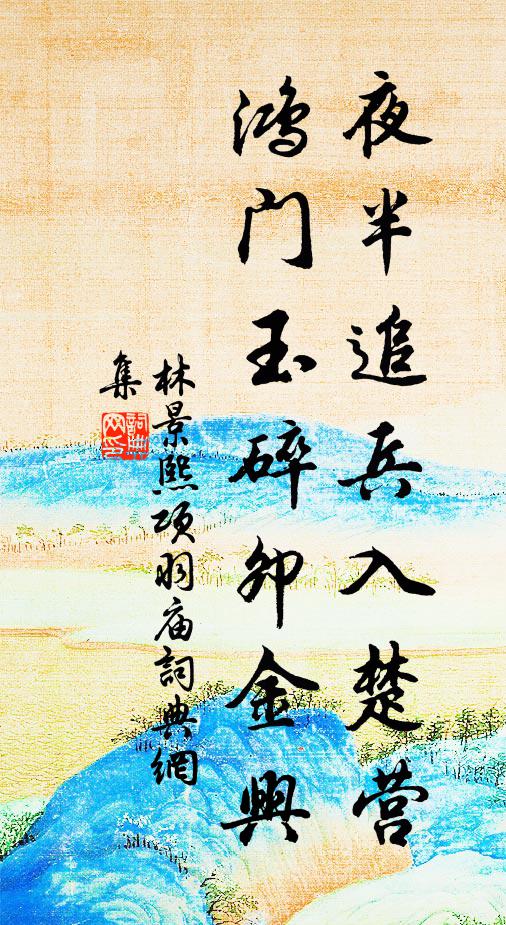 夜半追兵入楚营
鸿门玉碎卯金興
林景熙项羽庙詞典網
集